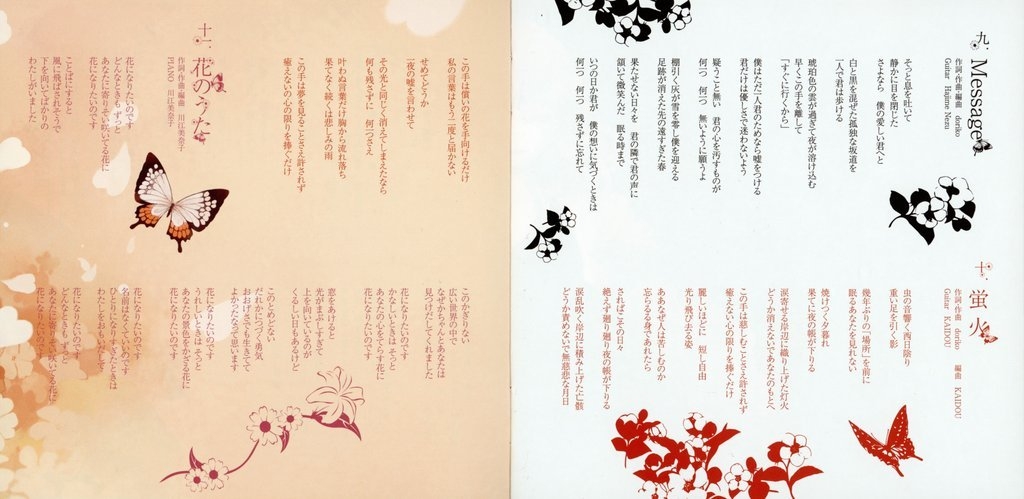 九．Message
作詞・作曲・編曲　doriko
Guitar　Hajime Nezu
そっと息を吐いて
静かに目を閉じた
さよなら　僕の愛しい君へと
白と黒を混ぜた孤独な坂道を
一人で君は歩ける
琥珀色の雲が過ぎて夜が溶け込む
早くこの手を離して
「すぐに行くから」
僕はただ一人君のためなら嘘をつける
君だけは優しさで迷わないよう
疑うこと無い　君の心を汚すものが
何一つ　何一つ　無いように願うよ
棚引く灰が雪を零し僕を迎える
足跡が消えた先の遠すぎた春
果たせない日々を　君の隣で君の声に
頷いて微笑んだ　眠る時まで
いつの日か君が　僕の想いに気づくときは
何一つ　何一つ　残さずに忘れて
十．蛍火
作詞・作曲　doriko　編曲　KAIDOU
Guitar　KAIDOU
虫の音響く西日陰り
重い足を引く影
幾年ぶりの「場所」を前に
眠るあなたを見れない
焼けつく夕暮れ
果てに夜の帳が下りる
涙寄せる岸辺に織り上げた灯火
どうか消えないであなたのもとへ
この手は慈しむことさえ許されず
癒えない心の限りを捧ぐだけ
麗しいほどに　短し自由
光り飛び去る姿
ああなぜ人は苦しむのか
忘らるる身であれたら
さればこその日々
絶えず廻り廻り夜の帳が下りる
涙乱吹く岸辺に積み上げた亡骸
どうか責めないで無慈悲な月日
この手は償いの花を手向けるだけ
私の言葉はもう二度と届かない
せめてどうか
一夜の嘘を言わせて
その光と同じく消えてしまえたなら
何も残さずに　何一つさえ
叶わぬ言葉だけ胸から流れ落ち
果てなく続くは悲しみの雨
この手は夢を見ることさえ許されず
癒えないの心の限りを捧ぐだけ
十一．花のうた
作詞・作曲・編曲　川江美奈子
PIANO　川江美奈子
花になりたいのです
どんなときも ずっと
あなたに寄りそい咲いてる花に
花になりたいのです
ことばにすると
風に飛ばされそうで
下を向いてばかりの
わたしがいました
このかぎりない
広い世界の中で
なぜだかちゃんとあなたは
見つけだしてくれました
花になりたいのです
かなしいときは そっと
あなたの心をてらす花に
花になりたいのです
窓をあけると
光がまぶしすぎて
上を向いているのが
くるしい日もあるけど
このとめどない
だれかにつづく勇気
おおげさでも生きてて
よかったなって思います
花になりたいのです
うれしいときは そっと
あなたの景色をかざる花に
花になりたいのです
花になりたいのです
名前はなくていいのです
ひとりになりたいときは
わたしをおもいだして
花になりたいのです
どんなときも ずっと
あなたに寄りそい咲いてる花に
花になりたいのです